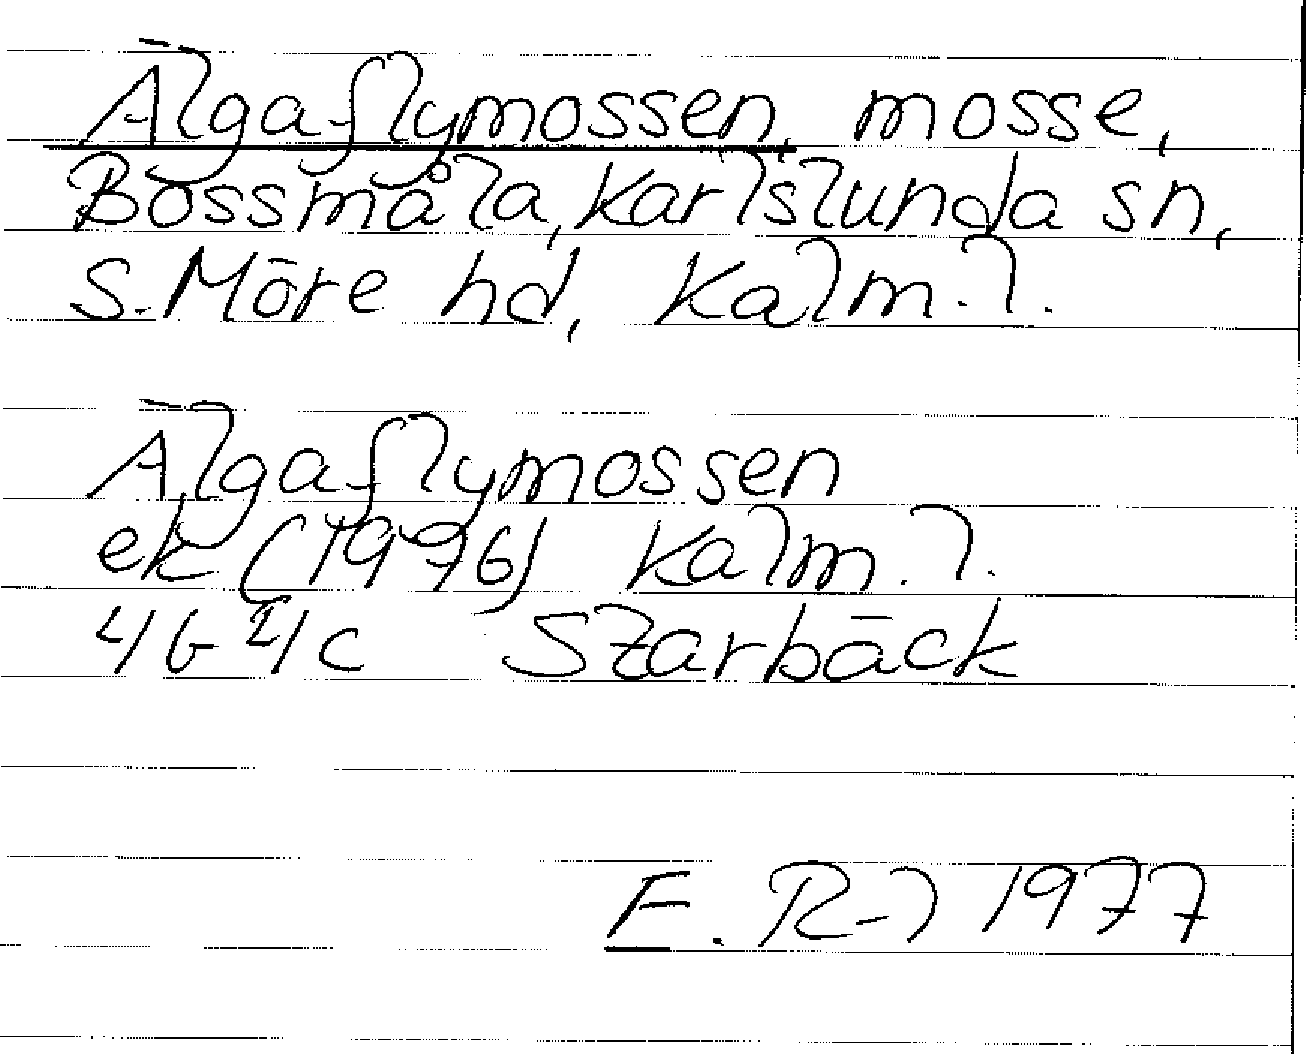 Älgaflymossen, mosse,
Bossmåla, Karlslunda sn,
S. Möre hd, Kalm. l.
Älgaflymossen
ek (1976) Kalm. l.
4G 4c Szarbäck
E. R-l 1977